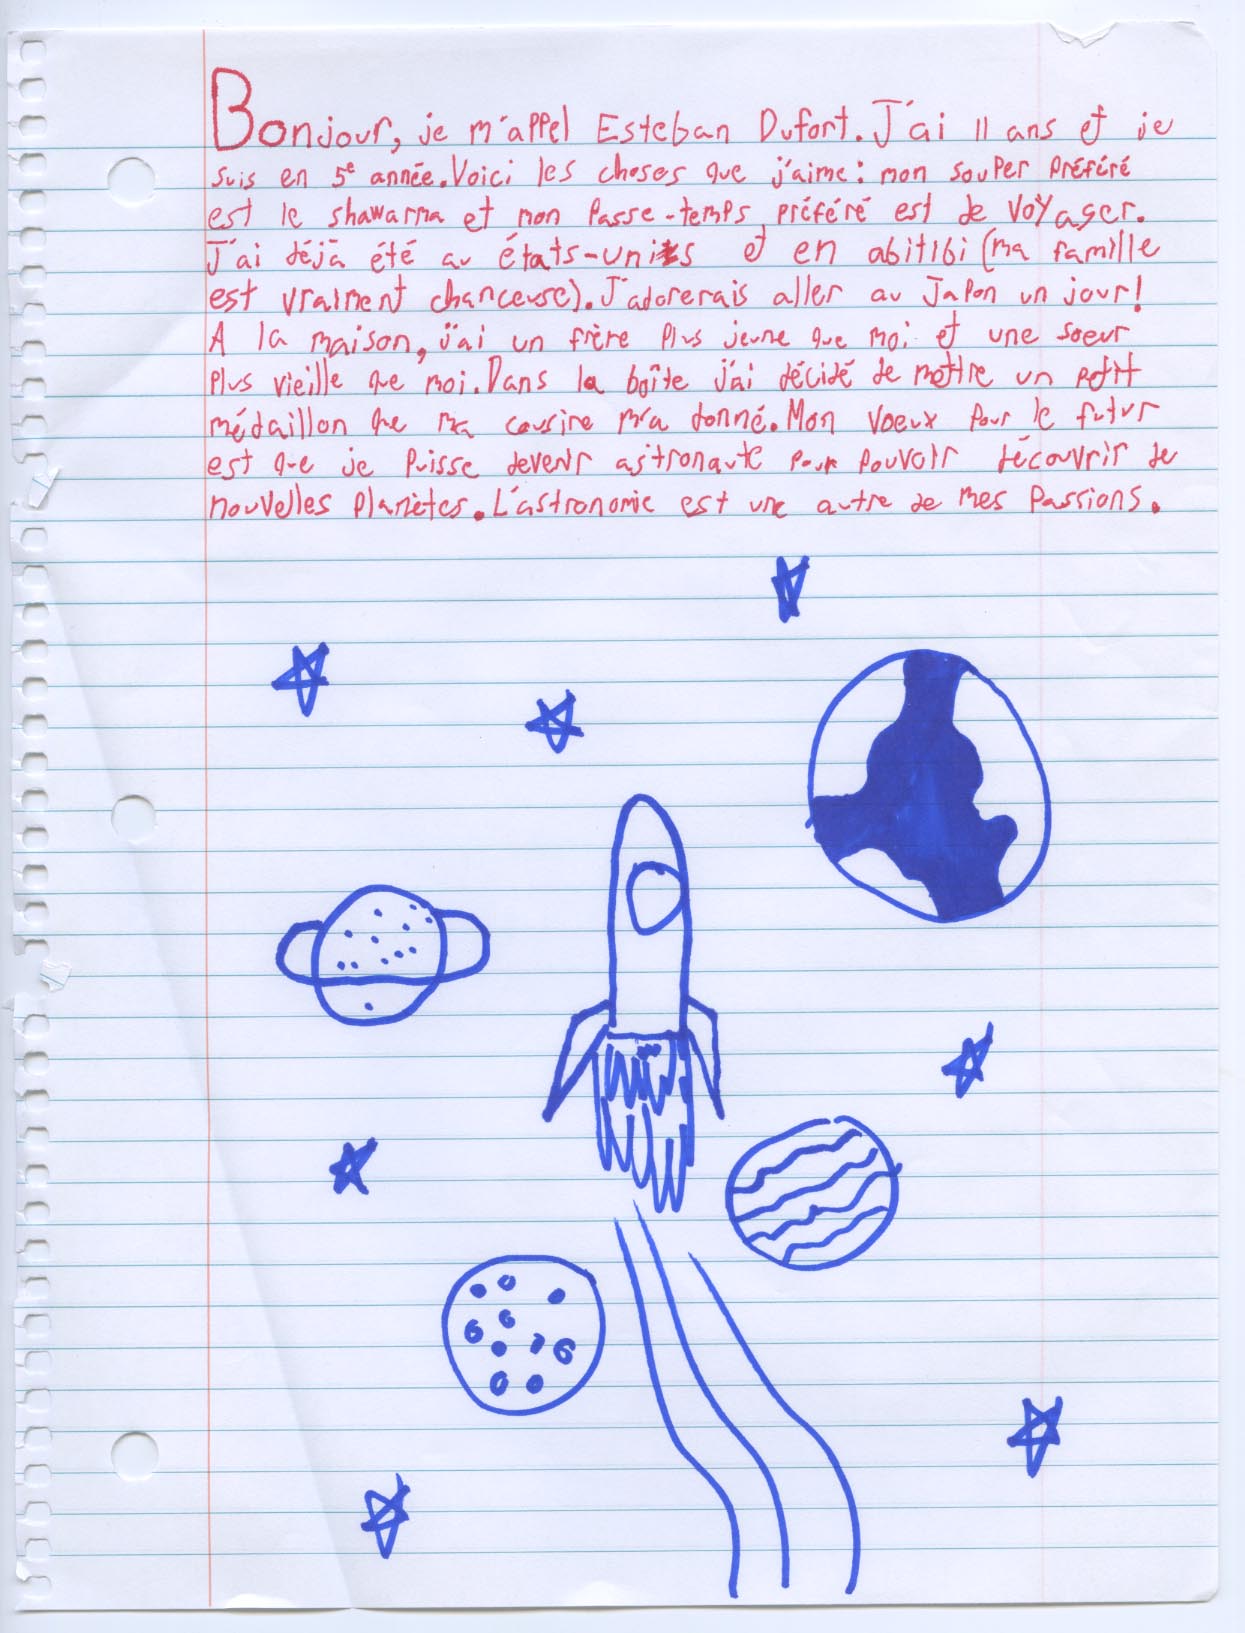 Bonjour, je m'appel Esteban Dufort. J'ai 11 ans et je
suis en 5e année. Voici les choses que j'aime: mon souper préféré
est le shawarma et mon passe-temps préféré est de voyager.
J'ai déjà été au états-unis et en abitibi (ma famille
est vraiment chanceuse). J'adorerais aller au Japon un jour!
A la maison, j'ai un frère plus jeune que moi et une soeur
plus vieille que moi. Dans la boîte j'ai décidé de mettre un petit
médaillon que ma cousine m'a donné. Mon voeux pour le futur
est que je puisse devenir astronaute pour pouvoir découvrir de
nouvelles planètes. L'astronomie est une autre de mes passions.